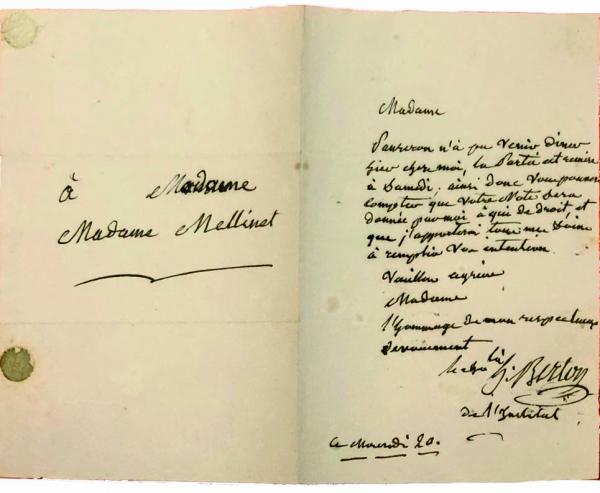 à Madame
Madame Mellinet
Madame
Panseron n'a pu venir diner
hier chez moi, la Partie est remise
à Samedi; ainsi donc Vous pouvez
compter que Votre Note Sera
donnée par moi à qui de droit, et
que j'apporterai tous mes Soins
à remplir Vos intentions
Veuillez agréer
Madame
l'Hommage de mon respectueux
devouement
H. Berton
de l'Institut
Ce Mercredi 20.